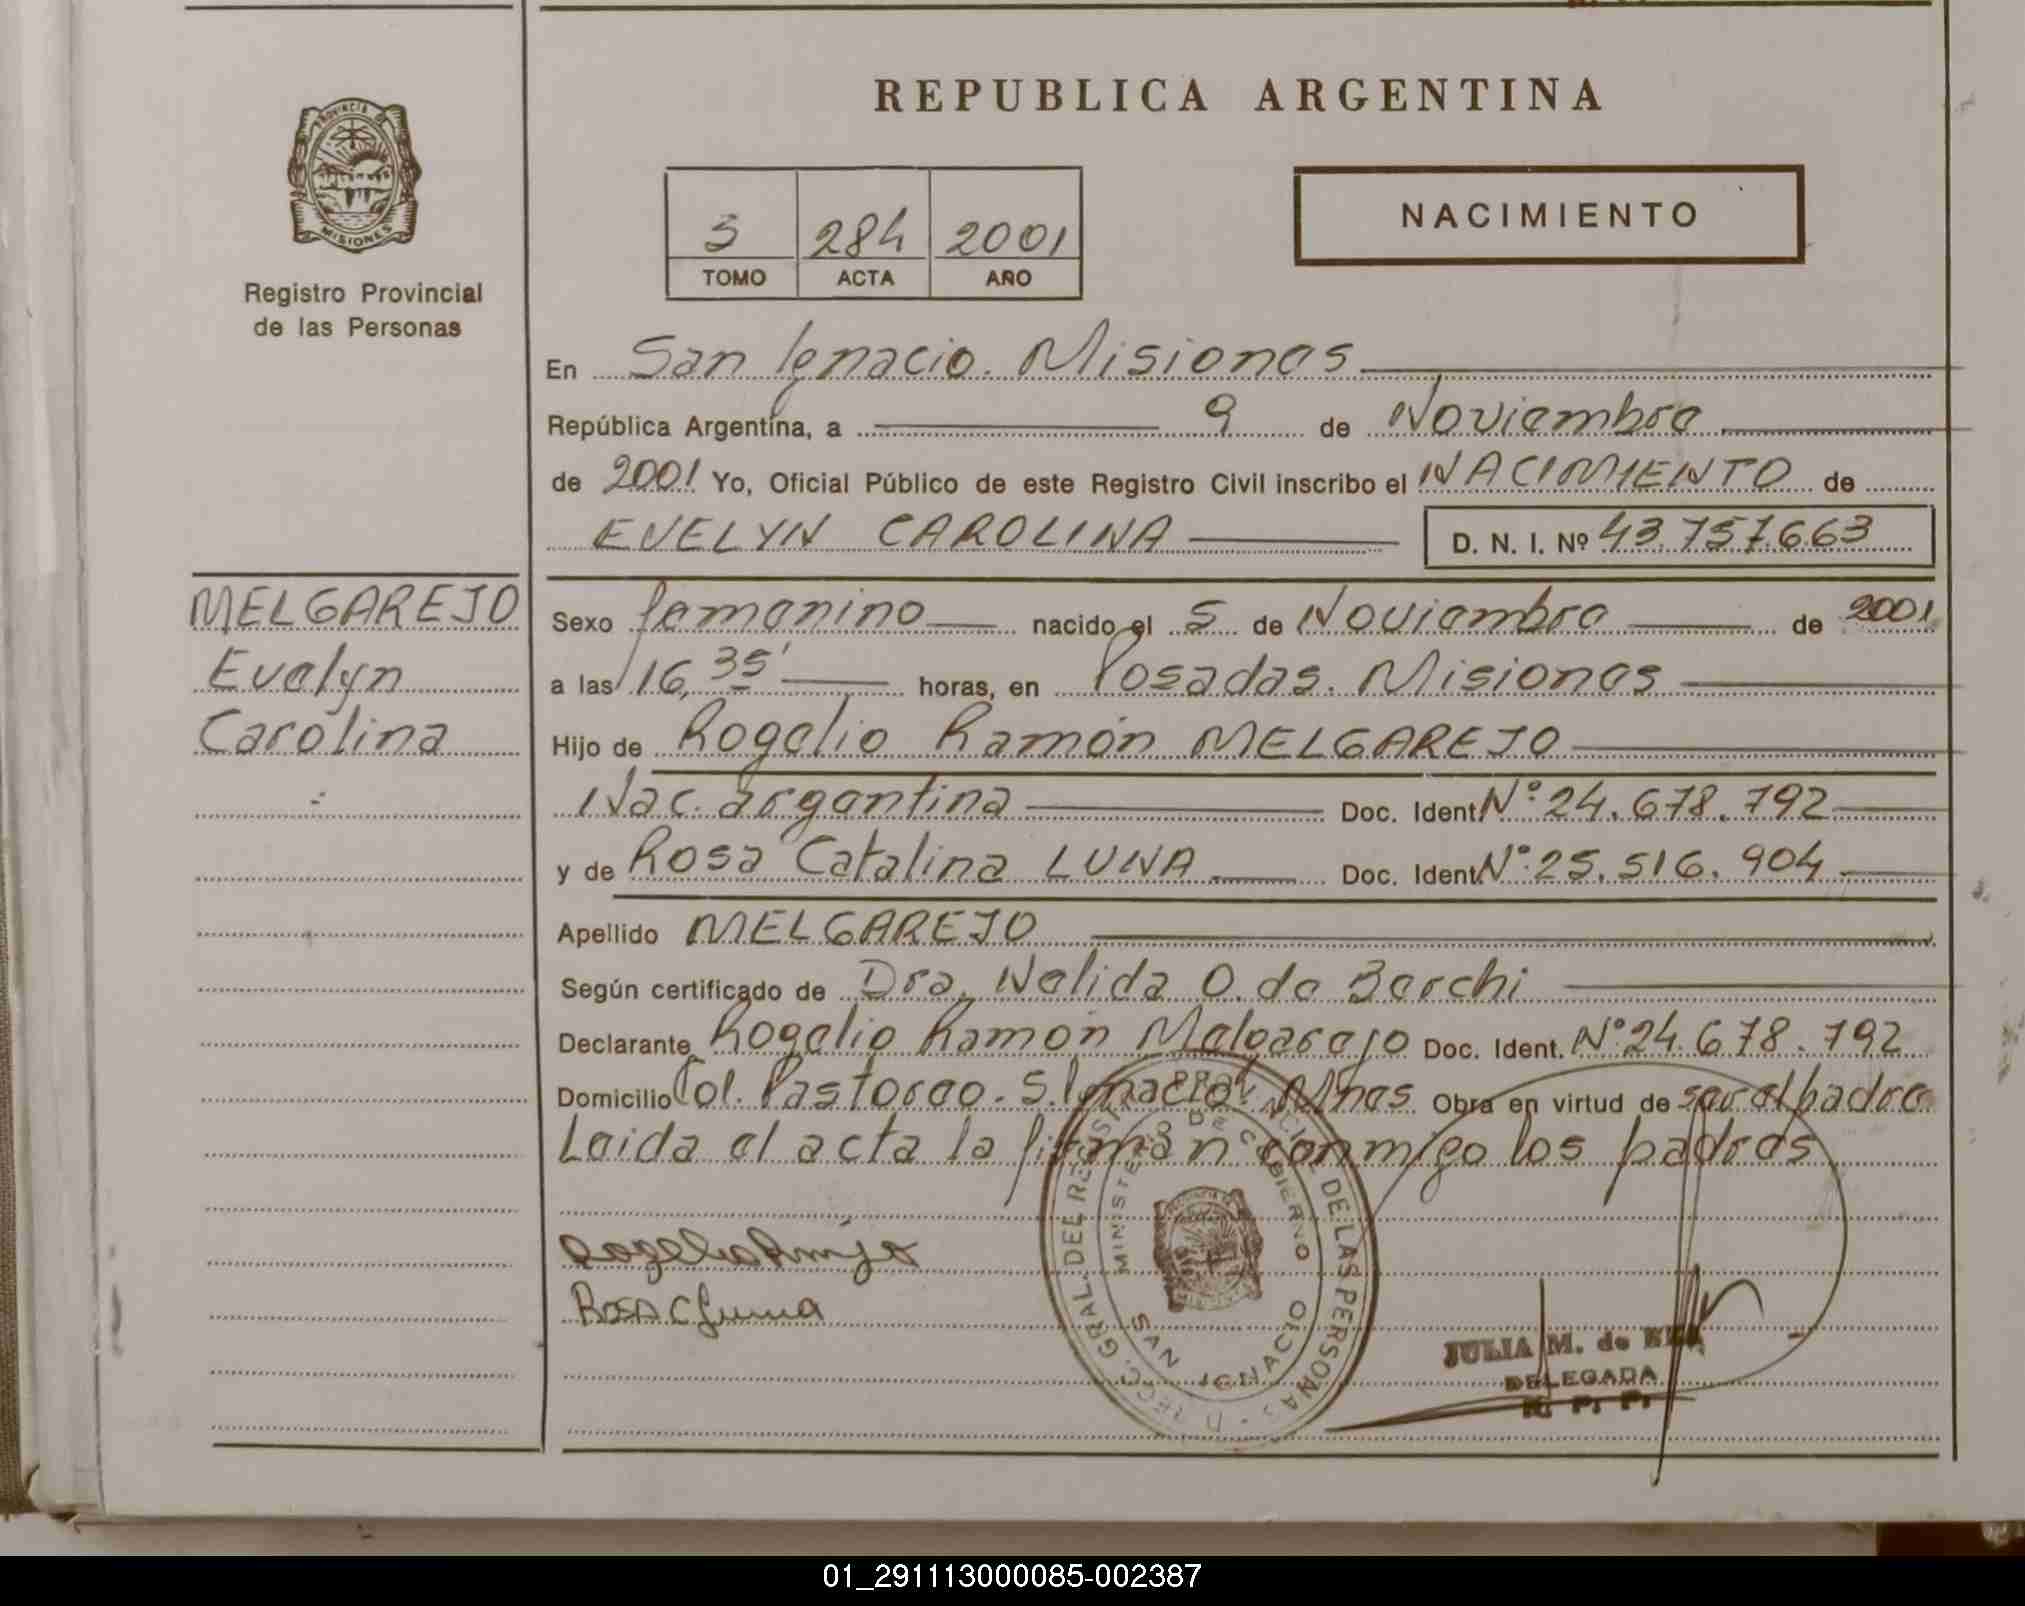 REPUBLICA ARGENTINA
PROVINCIA DE
MISIONES
Registro Provincial
de las Personas
3 284 2001
TOMO ACTA AÑO
NACIMIENTO
En San Ignacio. Misiones
República Argentina, a 9 de Noviembre
de 2001 Yo, Oficial Público de este Registro Civil inscribo el NACIMIENTO de
EVELYN CAROLINA D. N. I. Nº 43.757.663
MELGAREJO
Evelyn
Carolina
Sexo femenino nacido el 5 de Noviembre de 2001
a las 16,35' horas, en Posadas. Misiones
Hijo de Rogelio Ramón MELGAREJO
Nac. argentina Doc. Ident. Nº 24.678.792
y de Rosa Catalina LUNA Doc. Ident. Nº 25.516.904
Apellido MELGAREJO
Según certificado de Dra. Nelida O. de Berchi
Declarante Rogelio Ramón Melgarejo Doc. Ident. Nº 24.678.792
Domicilio Col. Pastoreo. S. Ignacio. Mnes Obra en virtud de ser el padre
Leida el acta la firman conmigo los padres
Rosa C Luna
DIRECC. GRAL. DEL REGISTRO PROVINCIAL DE LAS PERSONAS
MINISTERIO DE GOBIERNO
SAN IGNACIO
JULIA M. de
DELEGADA
R. P. P.
01_291113000085-002387